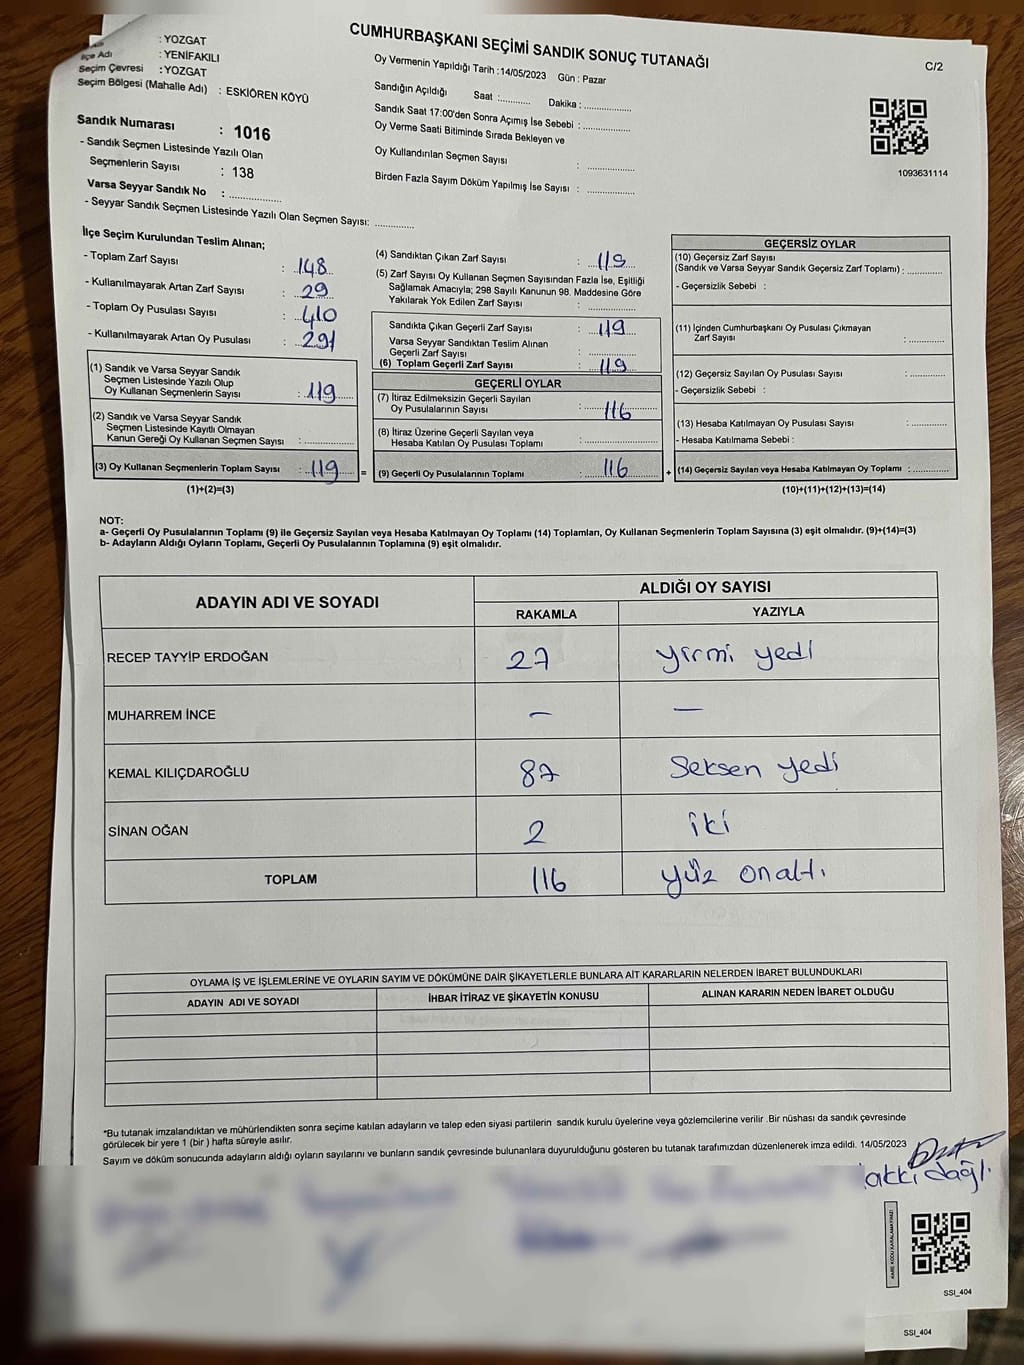 CUMHURBAŞKANI SEÇİMİ SANDIK SONUÇ TUTANAĞI
C/2
: YOZGAT
İlçe Adı : YENİFAKILI
Seçim Çevresi : YOZGAT
Seçim Bölgesi (Mahalle Adı) : ESKİÖREN KÖYÜ
Sandık Numarası : 1016
- Sandık Seçmen Listesinde Yazılı Olan
Seçmenlerin Sayısı : 138
Varsa Seyyar Sandık No : ................
- Seyyar Sandık Seçmen Listesinde Yazılı Olan Seçmen Sayısı: ............
Oy Vermenin Yapıldığı Tarih : 14/05/2023 Gün : Pazar
Sandığın Açıldığı Saat :........... Dakika :................
Sandık Saat 17:00'den Sonra Açımış İse Sebebi : ................
Oy Verme Saati Bitiminde Sırada Bekleyen ve
Oy Kullandırılan Seçmen Sayısı : ................
Birden Fazla Sayım Döküm Yapılmış İse Sayısı : ................
1093631114
İlçe Seçim Kurulundan Teslim Alınan;
- Toplam Zarf Sayısı : 148
- Kullanılmayarak Artan Zarf Sayısı : 29
- Toplam Oy Pusulası Sayısı : 410
- Kullanılmayarak Artan Oy Pusulası : 291
(1) Sandık ve Varsa Seyyar Sandık
Seçmen Listesinde Yazılı Olup
Oy Kullanan Seçmenlerin Sayısı : 119
(2) Sandık ve Varsa Seyyar Sandık
Seçmen Listesinde Kayıtlı Olmayan
Kanun Gereği Oy Kullanan Seçmen Sayısı : ................
(3) Oy Kullanan Seçmenlerin Toplam Sayısı : 119 =
(1)+(2)=(3)
(4) Sandıktan Çıkan Zarf Sayısı : 119
(5) Zarf Sayısı Oy Kullanan Seçmen Sayısından Fazla İse, Eşitliği
Sağlamak Amacıyla; 298 Sayılı Kanunun 98. Maddesine Göre
Yakılarak Yok Edilen Zarf Sayısı : ................
Sandıkta Çıkan Geçerli Zarf Sayısı : 119
Varsa Seyyar Sandıktan Teslim Alınan
Geçerli Zarf Sayısı : ................
(6) Toplam Geçerli Zarf Sayısı : 119
GEÇERLİ OYLAR
(7) İtiraz Edilmeksizin Geçerli Sayılan
Oy Pusulalarının Sayısı : 116
(8) İtiraz Üzerine Geçerli Sayılan veya
Hesaba Katılan Oy Pusulası Toplamı : ................
(9) Geçerli Oy Pusulalarının Toplamı : 116 +
GEÇERSİZ OYLAR
(10) Geçersiz Zarf Sayısı
(Sandık ve Varsa Seyyar Sandık Geçersiz Zarf Toplamı) : ............
- Geçersizlik Sebebi :
(11) İçinden Cumhurbaşkanı Oy Pusulası Çıkmayan
Zarf Sayısı : ............
(12) Geçersiz Sayılan Oy Pusulası Sayısı : ............
- Geçersizlik Sebebi :
(13) Hesaba Katılmayan Oy Pusulası Sayısı : ............
- Hesaba Katılmama Sebebi :
(14) Geçersiz Sayılan veya Hesaba Katılmayan Oy Toplamı : ............
(10)+(11)+(12)+(13)=(14)
NOT:
a- Geçerli Oy Pusulalarının Toplamı (9) ile Geçersiz Sayılan veya Hesaba Katılmayan Oy Toplamı (14) Toplamları, Oy Kullanan Seçmenlerin Toplam Sayısına (3) eşit olmalıdır. (9)+(14)=(3)
b- Adayların Aldığı Oyların Toplamı, Geçerli Oy Pusulalarının Toplamına (9) eşit olmalıdır.
ADAYIN ADI VE SOYADI
ALDIĞI OY SAYISI
RAKAMLA YAZIYLA
RECEP TAYYİP ERDOĞAN 27 yirmi yedi
MUHARREM İNCE — —
KEMAL KILIÇDAROĞLU 87 Seksen yedi
SİNAN OĞAN 2 iki
TOPLAM 116 yüz onaltı
OYLAMA İŞ VE İŞLEMLERİNE VE OYLARIN SAYIM VE DÖKÜMÜNE DAİR ŞİKAYETLERLE BUNLARA AİT KARARLARIN NELERDEN İBARET BULUNDUKLARI
ADAYIN ADI VE SOYADI İHBAR İTİRAZ VE ŞİKAYETİN KONUSU ALINAN KARARIN NEDEN İBARET OLDUĞU
*Bu tutanak imzalandıktan ve mühürlendikten sonra seçime katılan adayların ve talep eden siyasi partilerin sandık kurulu üyelerine veya gözlemcilerine verilir .Bir nüshası da sandık çevresinde
görülecek bir yere 1 (bir ) hafta süreyle asılır.
Sayım ve döküm sonucunda adayların aldığı oyların sayılarını ve bunların sandık çevresinde bulunanlara duyurulduğunu gösteren bu tutanak tarafımızdan düzenlenerek imza edildi. 14/05/2023
akkı dağlı
KARE KODU KARALAMAYINIZ!
SSI_404
SSI_404